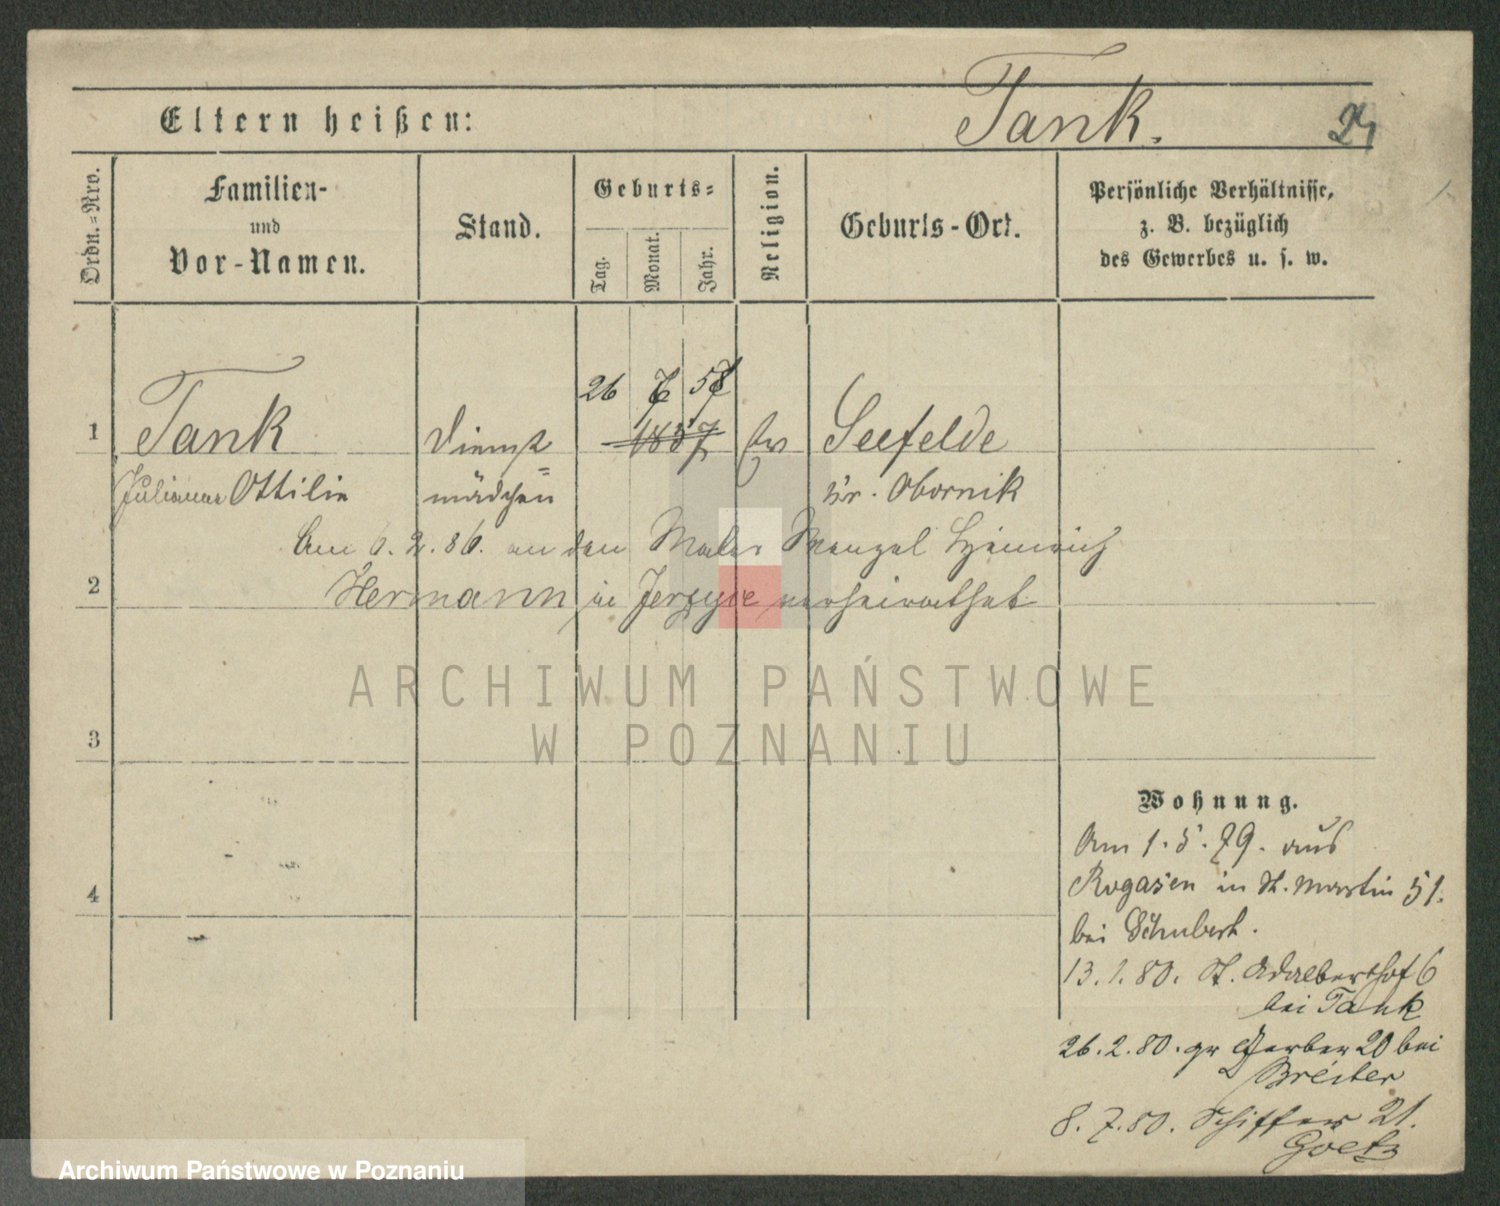 Eltern heißen: Tank.
Ordn.=Nro.
Familien-
und
Vor-Namen.
Stand.
Geburts=
Tag.
Monat.
Jahr.
Religion.
Geburts-Ort.
Persönliche Verhältnisse,
z. B. bezüglich
des Gewerbes u. s. w.
26 57
1 Tank Dienst 1857 ev Seefelde
Juliane Ottilie mädchen Kr. Obornik
Am 6.2.86. an den Maler Menzel Heinrich
2 Hermann in Jerzyce verheirathet
ARCHIWUM PAŃSTWOWE
W POZNANIU
3
4
Wohnung.
Am 1.5.79. aus
Rogasen in St. Martin 51.
bei Schubert.
13.1.80. St. Adalberthof 6
bei Tank
26.2.80. gr Gerber 20 bei
Breiter
8.7.80. Schiffer 21.
Goetz
Archiwum Państwowe w Poznaniu